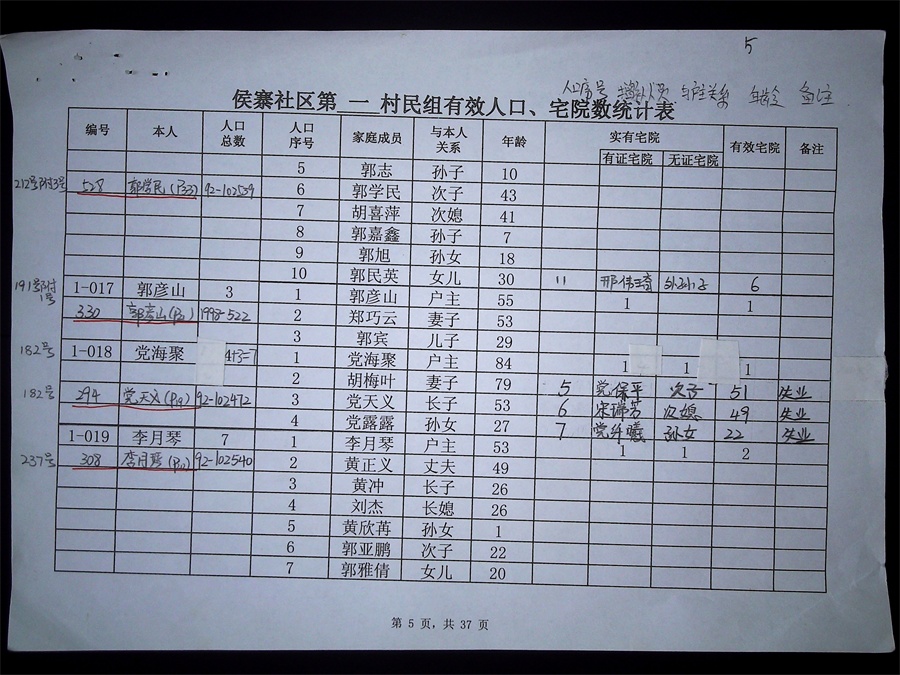 5
侯寨社区第 一 村民组有效人口、宅院数统计表
人口序号 与户主关系 年龄 备注
编号 本人 人口总数 人口序号 家庭成员 与本人关系 年龄 实有宅院 有效宅院 备注
有证宅院 无证宅院
5 郭志 孙子 10
212号附3号 528 郭学民(P33) 92-102539 6 郭学民 次子 43
7 胡喜萍 次媳 41
8 郭嘉鑫 孙子 7
9 郭旭 孙女 18
10 郭民英 女儿 30 11 邢伟琦 外孙子 6
191号附1号 1-017 郭彦山 3 1 郭彦山 户主 55 1 1
330 郭彦山 1998-522 2 郑巧云 妻子 53
3 郭宾 儿子 29
182号 1-018 党海聚 4+3=7 1 党海聚 户主 84 1 1 1
2 胡梅叶 妻子 79 5 党保平 次子 51 失业
182号 294 党天义(P19) 92-102472 3 党天义 长子 53 6 宋瑞芳 次媳 49 失业
4 党露露 孙女 27 7 孙女 22 失业
1-019 李月琴 7 1 李月琴 户主 53 1 1 2
237号 308 李月琴 92-102540 2 黄正义 丈夫 49
3 黄冲 长子 26
4 刘杰 长媳 26
5 黄欣苒 孙女 1
6 郭亚鹏 次子 22
7 郭雅倩 女儿 20
第 5 页，共 37 页